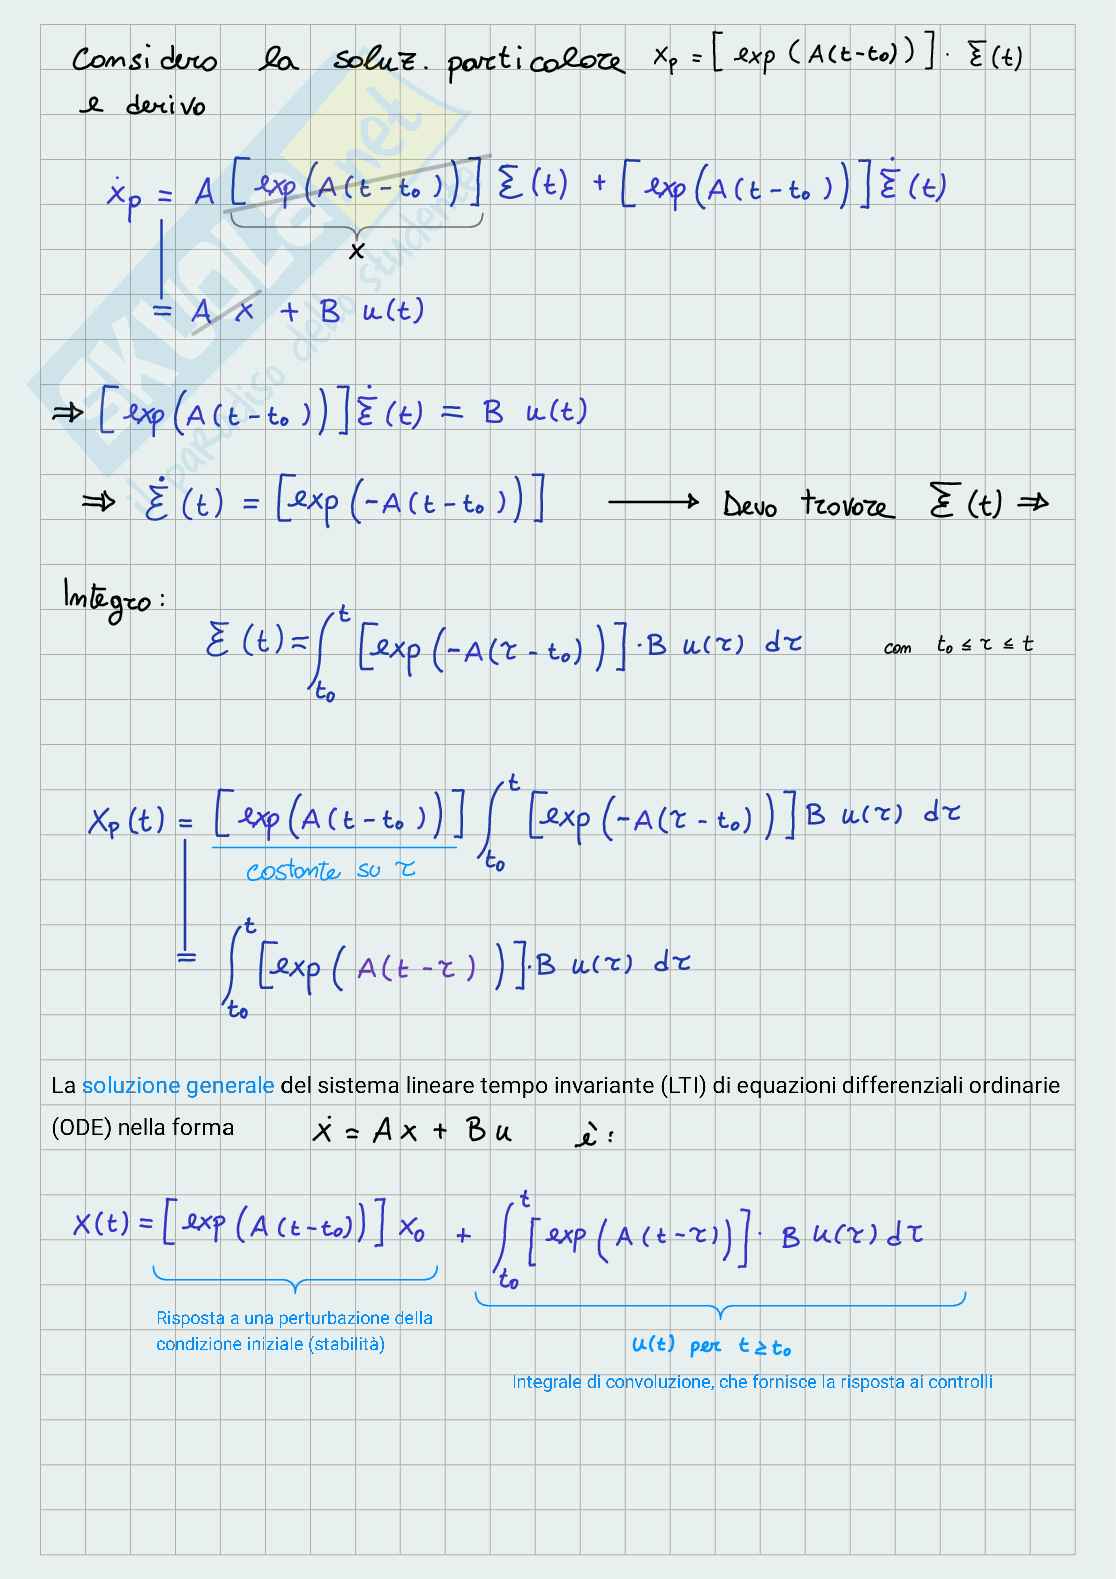 Considero la soluz. particolare xₚ = [exp(A(t-t₀))]· Ξ(t)
e derivo
ẋₚ = A [exp(A(t-t₀))] Ξ(t) + [exp(A(t-t₀))] Ξ̇(t)
x
= A x + B u(t)
⇒ [exp(A(t-t₀))] Ξ̇(t) = B u(t)
⇒ Ξ̇(t) = [exp(-A(t-t₀))] ⟶ Devo trovare Ξ(t) ⇒
Integro:
Ξ(t) = ∫ₜ₀ᵗ [exp(-A(τ-t₀))]·B u(τ) dτ con t₀ ≤ τ ≤ t
Xₚ(t) = [exp(A(t-t₀))] ∫ₜ₀ᵗ [exp(-A(τ-t₀))] B u(τ) dτ
costante su τ
= ∫ₜ₀ᵗ [exp(A(t-τ))]·B u(τ) dτ
La soluzione generale del sistema lineare tempo invariante (LTI) di equazioni differenziali ordinarie
(ODE) nella forma ẋ = Ax + Bu è:
X(t) = [exp(A(t-t₀))] x₀ + ∫ₜ₀ᵗ [exp(A(t-τ))]· B u(τ) dτ
Risposta a una perturbazione della
condizione iniziale (stabilità)
u(t) per t ≥ t₀
Integrale di convoluzione, che fornisce la risposta ai controlli
SKUOLA.net
il paradiso dello studente